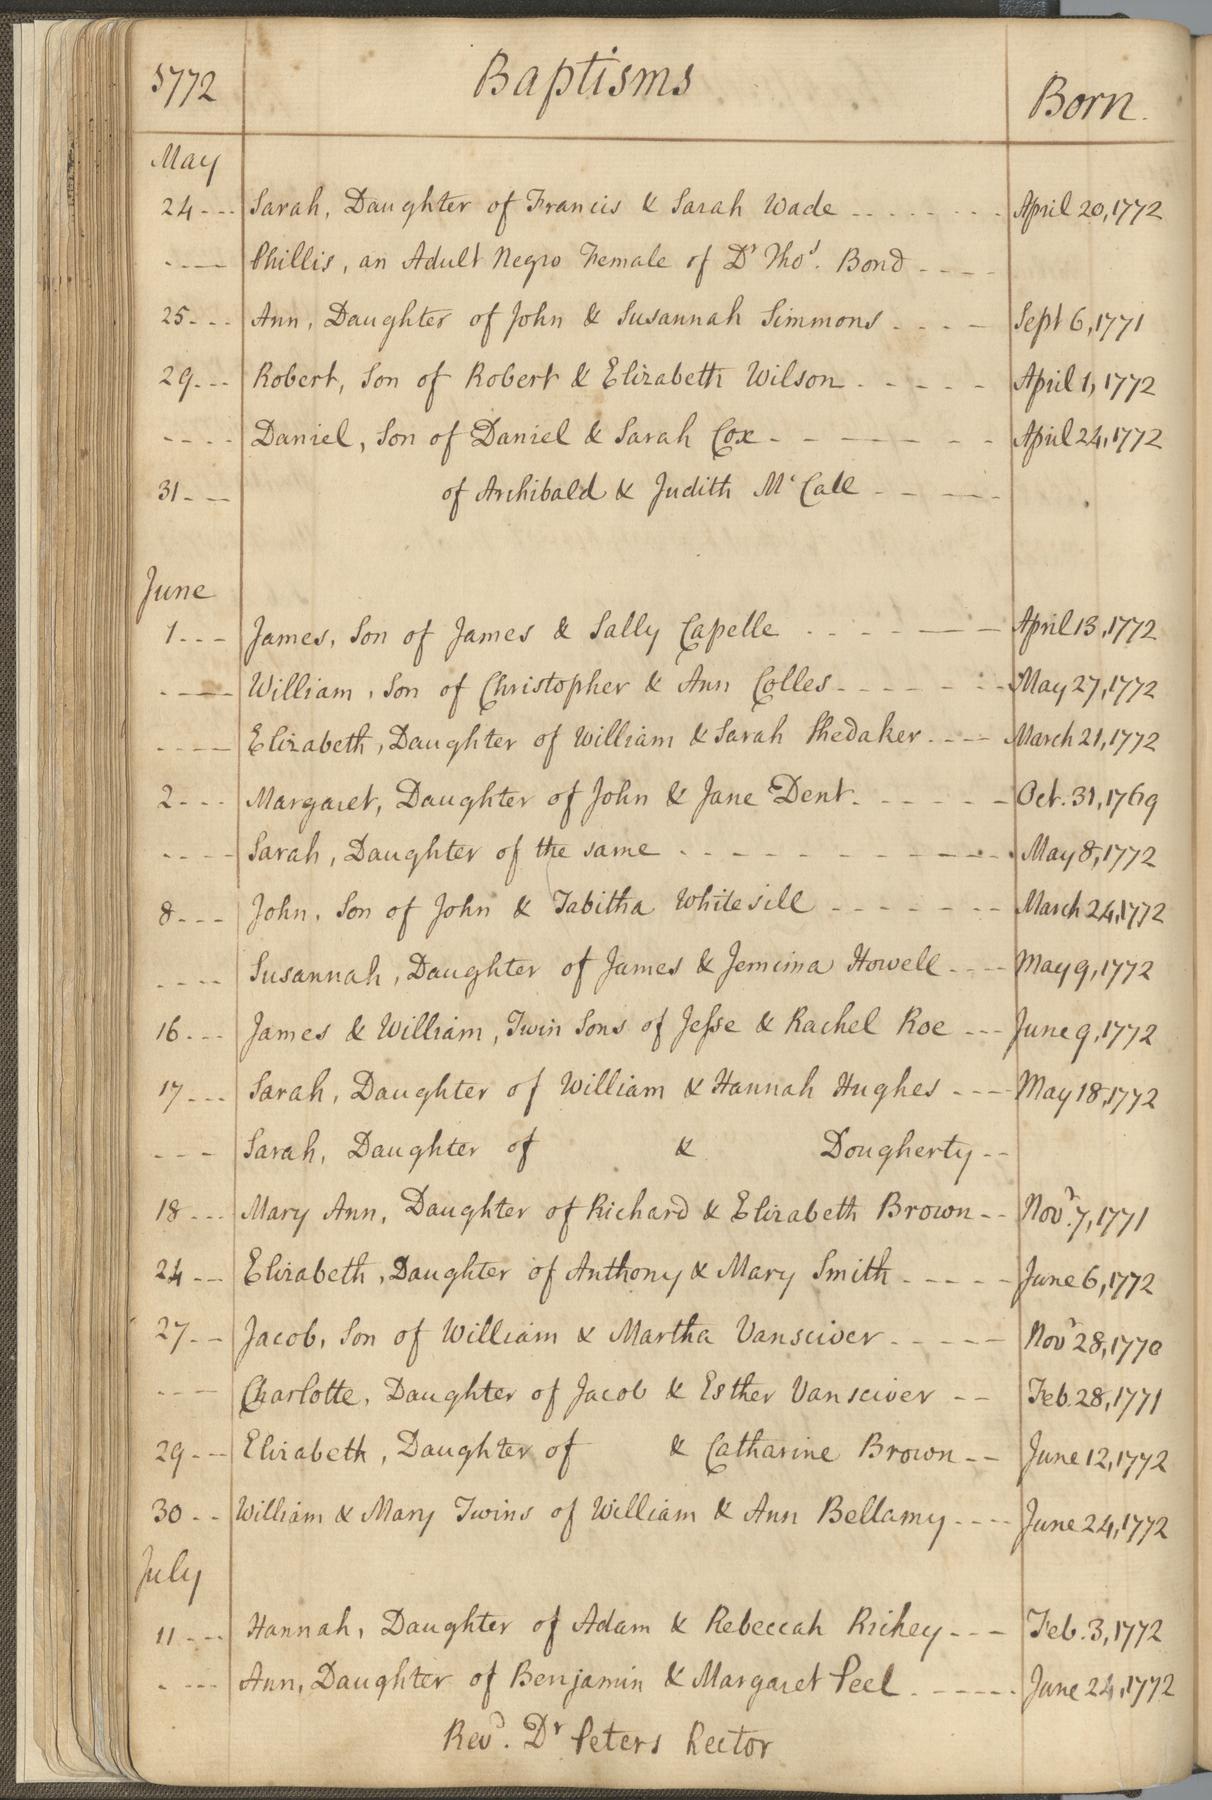 1772 Baptisms Born.
May
24 --- Sarah, Daughter of Francis & Sarah Wade -------- April 20, 1772
---- Phillis, an Adult Negro Female of Dr Thos. Bond ----
25 --- Ann, Daughter of John & Susannah Simmons ---- Sept 6, 1771
29 --- Robert, Son of Robert & Elizabeth Wilson ----- April 1, 1772
---- Daniel, Son of Daniel & Sarah Cox ------- April 24, 1772
31 --- of Archibald & Judith McCall ----
June
1 --- James, Son of James & Sally Capelle ------ April 13, 1772
---- William, Son of Christopher & Ann Colles ------- May 27, 1772
---- Elizabeth, Daughter of William & Sarah Shedaker ---- March 21, 1772
2 --- Margaret, Daughter of John & Jane Dent ------ Oct. 31, 1769
---- Sarah, Daughter of the same ---------- May 8, 1772
8 --- John, Son of John & Tabitha Whitesill ------ March 24, 1772
---- Susannah, Daughter of James & Jemima Howell ---- May 9, 1772
16 --- James & William, Twin Sons of Jesse & Rachel Roe --- June 9, 1772
17 --- Sarah, Daughter of William & Hannah Hughes ---- May 18, 1772
--- Sarah, Daughter of & Dougherty --
18 --- Mary Ann, Daughter of Richard & Elizabeth Brown -- Novr. 7, 1771
24 -- Elizabeth, Daughter of Anthony & Mary Smith ----- June 6, 1772
27 -- Jacob, Son of William & Martha Vansciver ----- Novr 28, 1770
--- Charlotte, Daughter of Jacob & Esther Vansciver -- Feb. 28, 1771
29 -- Elizabeth, Daughter of & Catharine Brown -- June 12, 1772
30 -- William & Mary Twins of William & Ann Bellamy ---- June 24, 1772
July
11 --- Hannah, Daughter of Adam & Rebeccah Richey --- Feb. 3, 1772
---- Ann, Daughter of Benjamin & Margaret Peel ----- June 24, 1772
Revd. Dr Peters Rector